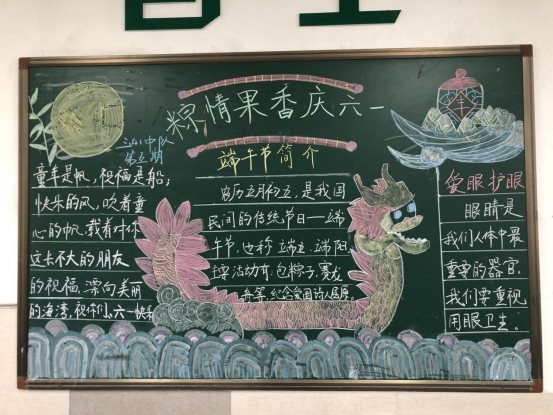 粽情果香庆六一
中队
第五期
童年是帆，祝福是船；
快乐的风，吹着童
心的帆，载着对你
这长不大的朋友
的祝福，漂向美丽
的海湾，祝你六一快乐
端午节简介
农历五月初五，是我国
民间的传统节日——端
午节，也称端五，端阳
活动有：包粽子，赛龙
舟等，纪念爱国诗人屈原。
爱眼护眼
眼睛是
我们人体中最
重要的器官，
我们要重视
用眼卫生。